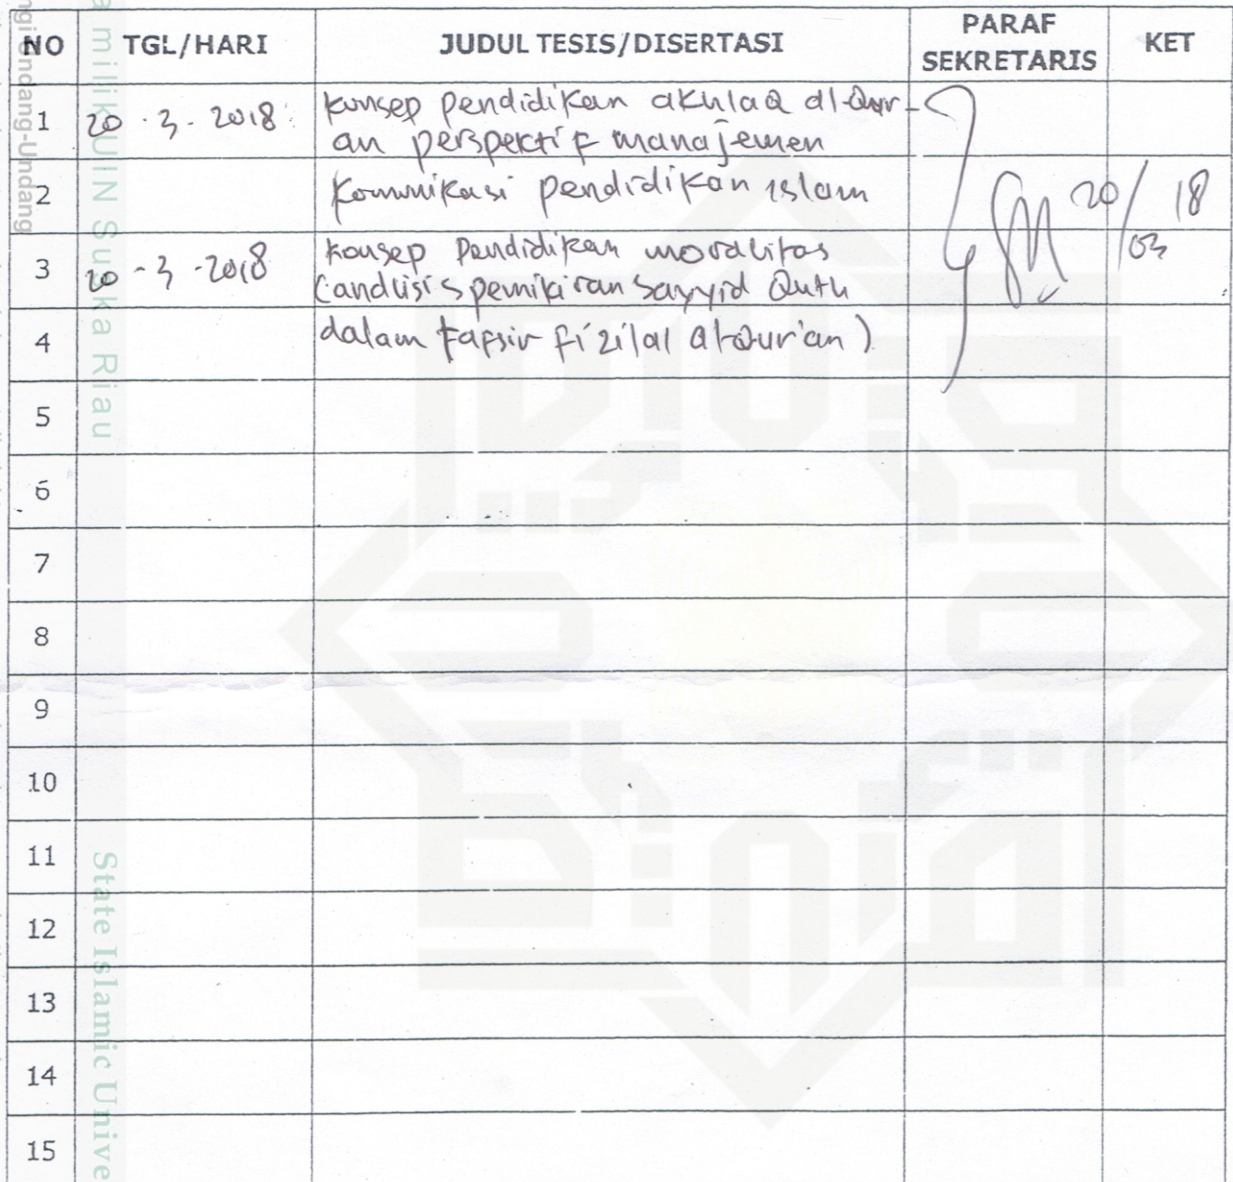 NO TGL/HARI JUDUL TESIS/DISERTASI PARAF SEKRETARIS KET
1 20 - 3 - 2018 konsep pendidikan akhlaq al-Qur-
an perspektif manajemen
2 komunikasi pendidikan islam
3 20 - 3 - 2018 konsep pendidikan moralitas
(analisis pemikiran Sayyid Qutu
4 dalam tafsir fi zilal al-Qur'an)
20/03 18
5
6
7
8
9
10
11
12
13
14
15
ngi Undang-Undang
a milik UIN Suska Riau
State Islamic Unive